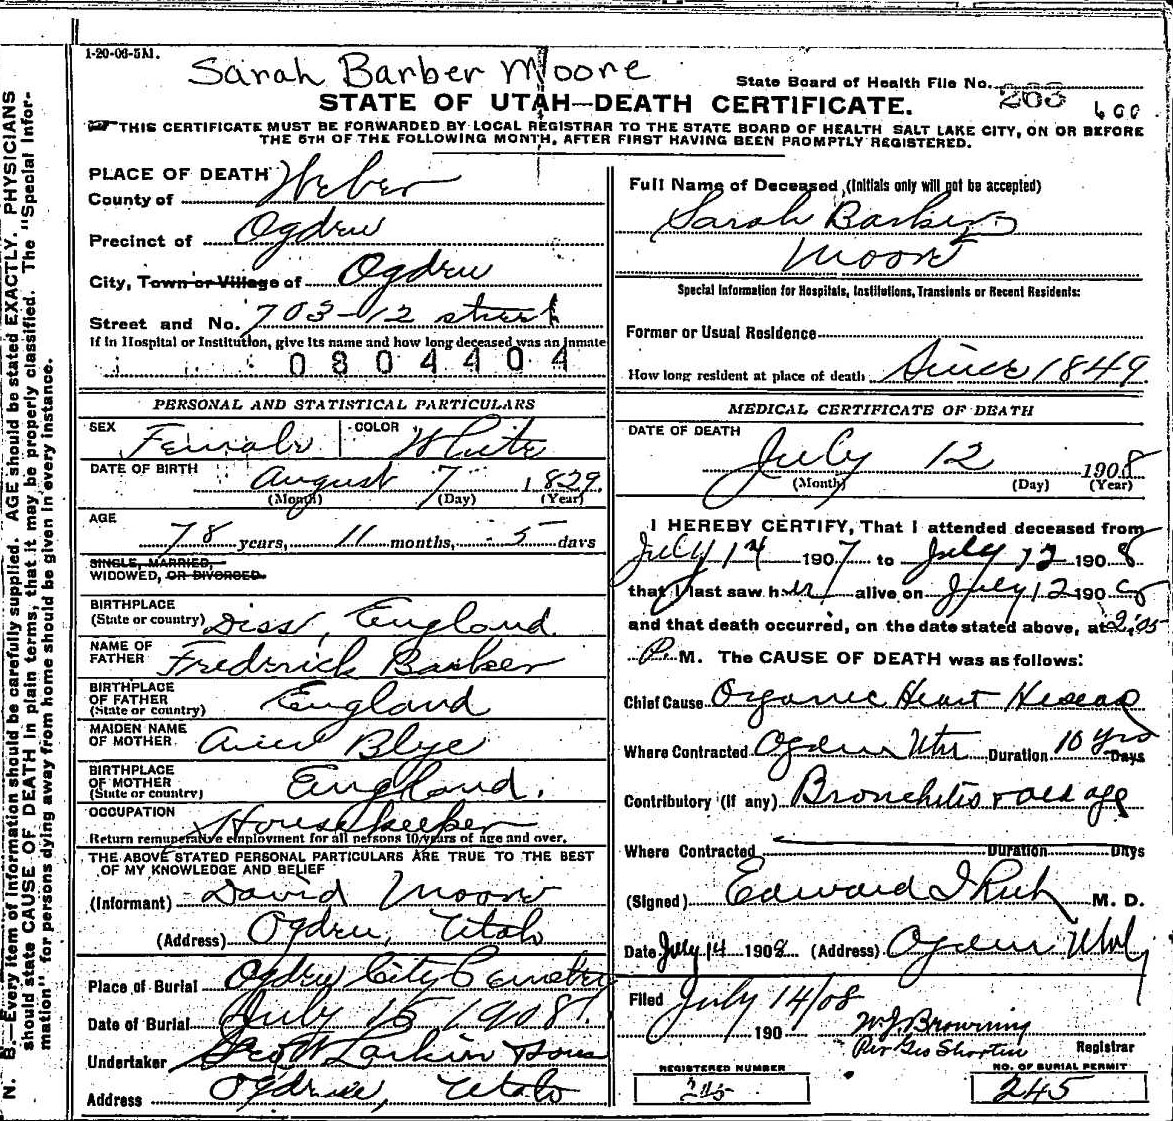 1-20-06-5M.
Sarah Barber Moore
State Board of Health File No. 263 600
STATE OF UTAH—DEATH CERTIFICATE.
THIS CERTIFICATE MUST BE FORWARDED BY LOCAL REGISTRAR TO THE STATE BOARD OF HEALTH SALT LAKE CITY, ON OR BEFORE
THE 5TH OF THE FOLLOWING MONTH, AFTER FIRST HAVING BEEN PROMPTLY REGISTERED.
PLACE OF DEATH
County of Weber
Precinct of Ogden
City, Town or Village of Ogden
Street and No. 703-12 street
If in Hospital or Institution, give its name and how long deceased was an inmate
0804404
PERSONAL AND STATISTICAL PARTICULARS
SEX Female COLOR White
DATE OF BIRTH August 7 1829
(Month) (Day) (Year)
AGE
78 years, 11 months, 5 days
SINGLE, MARRIED,
WIDOWED, OR DIVORCED
BIRTHPLACE
(State or country) Diss, England.
NAME OF
FATHER Fredrick Barber
BIRTHPLACE
OF FATHER
(State or country) England
MAIDEN NAME
OF MOTHER Blye
BIRTHPLACE
OF MOTHER
(State or country) England.
OCCUPATION
Housekeeper
Return remunerative employment for all persons 10 years of age and over.
THE ABOVE STATED PERSONAL PARTICULARS ARE TRUE TO THE BEST
OF MY KNOWLEDGE AND BELIEF
(Informant) David Moore
(Address) Ogden, Utah
Place of Burial Ogden City Cemetery
Date of Burial July 15 1908.
Undertaker Geo W Larkin & Sons
Address Ogden, Utah
Full Name of Deceased (Initials only will not be accepted)
Sarah Barber
Moore
Special Information for Hospitals, Institutions, Transients or Recent Residents:
Former or Usual Residence
How long resident at place of death Since 1849
MEDICAL CERTIFICATE OF DEATH
DATE OF DEATH
July 12 1908
(Month) (Day) (Year)
I HEREBY CERTIFY, That I attended deceased from
July 14 1907 to July 12 1908
that I last saw her alive on July 12 1908
and that death occurred, on the date stated above, at 2.05
P. M. The CAUSE OF DEATH was as follows:
Chief Cause Organic Heart Disease
Where Contracted Ogden Utah Duration 10 yrs Days
Contributory (If any) Bronchitis & old age
Where Contracted Duration Days
(Signed) Edward I Rich M. D.
Date July 14 1908 (Address) Ogden Utah
Filed July 14/08
190 W.J. Browning
Per Geo Shorten Registrar
REGISTERED NUMBER
NO. OF BURIAL PERMIT
245
N. B.—Every item of information should be carefully supplied. AGE should be stated EXACTLY. PHYSICIANS
should state CAUSE OF DEATH in plain terms, that it may be properly classified. The "Special Infor-
mation" for persons dying away from home should be given in every instance.